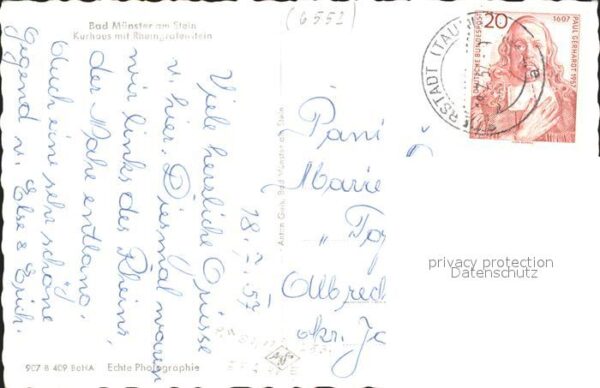 Bad Münster am Stein
Kurhaus mit Rheingrafenstein
(6552)
18.7.57
Viele herzliche Grüsse
v. hier. Diesmal waren
wir links des Rheins,
der Nahe entlang.
Auch eine sehr schöne
Gegend v. Else & Erich.
20
1607
PAUL GERHARDT 1957
DEUTSCHE BUNDESPOST
RSTADT (TAU
Paní
Marie
Albrech
okr. Ja
Bad Münster am Stein
privacy protection
Datenschutz
907 B 409 BeNA
Echte Photographie